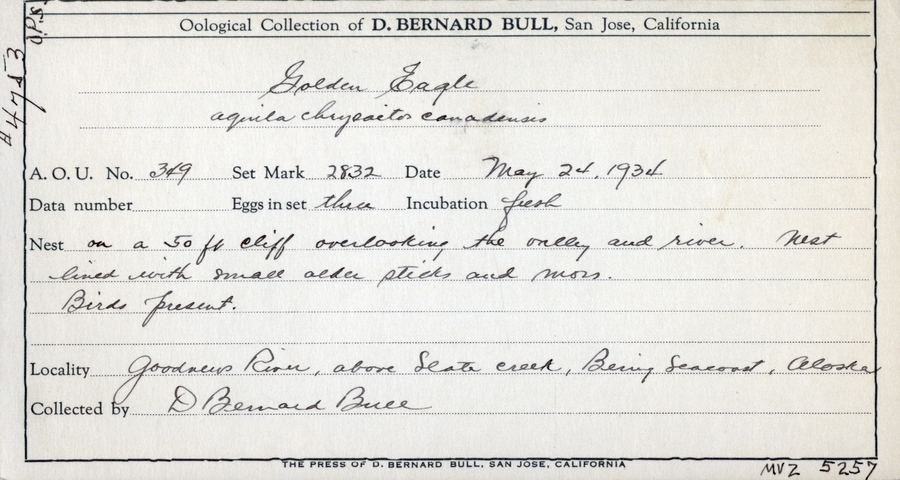 Oological Collection of D. BERNARD BULL, San Jose, California
Golden Eagle
aquila chrysaitos canadensis
A. O. U. No. 349 Set Mark 2832 Date May 24, 1934
Data number Eggs in set three Incubation fresh
Nest on a 50 ft cliff overlooking the valley and river. Nest
lined with small alder sticks and moss.
Birds present.
Locality Goodnews River, above Slate creek, Bering Seacoast, Alaska
Collected by D Bernard Bull
THE PRESS OF D. BERNARD BULL, SAN JOSE, CALIFORNIA
MVZ 5257